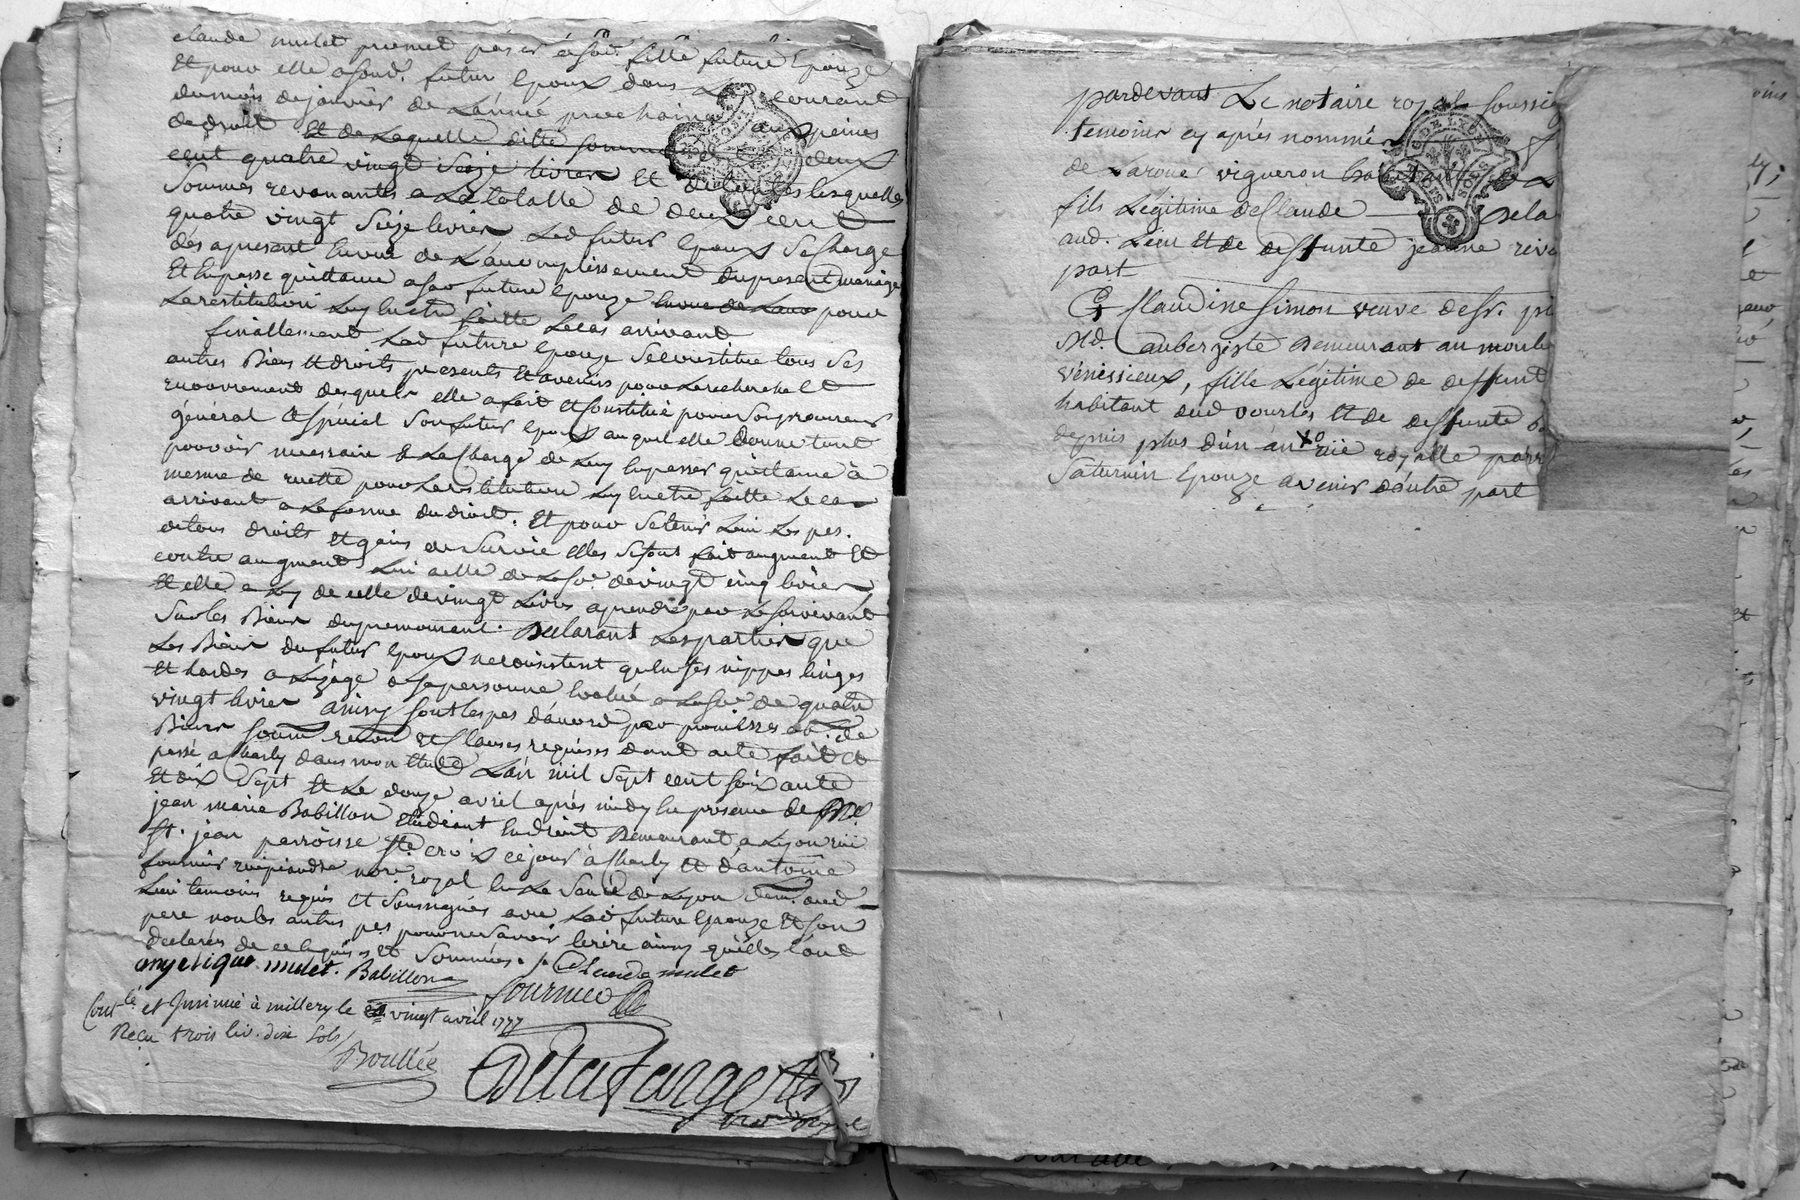 claude mulet promet payer a sad. fille future Epouze
Et pour elle a sond. futur Epoux dans le courant
du mois de janvier de L'année prochaine aux peines
de droit Et de Laquelle ditte somme deux
cent quatre vingt seize livres Et lesquelles
Sommes revenantes a La totalle de deux cent
quatre vingt seize livres Led futur Epoux Se Charge
dés apresent En vue de L'accomplissement du present mariage
Et En passe quittance a sad future Epouze pour
La restitution Luy En etre faitte Le cas arrivant
finallement Lad future Epouze Se constitue tous ses
autres Biens Et droits presents Et avenirs pour La recherche Et
recouvrement desquels elle a fait Et Constitué pour Son procureur
général Et spécial Son futur Epoux auquel elle donne tout
pouvoir necessaire & Le Charge de Luy En passer quittance à
mesme de cette pour La restitution Luy En etre faitte Le cas
arrivant a La forme du droit. Et pour Se tenir Lieu Les pes.
de tous droits Et gains de Survie Elles Se sont fait augment Et
contre augment Lui a elle de La Se. de vingt cinq livres
Et elle a Luy de celle de vingt Livres a prendre par Le Survivant
Sur les Biens du premourant. Declarant Les parties que
Les Biens du futur Epoux ne consistent qu'En Ses nippes linges
Et hardes a L'uzage de Sa personne Evalué a La Se. de quatre
vingt livres ainsy Sont Les pes d'accord par promesses ob. de
Biens Soum. renon. Et Clauses requises dont acte fait Et
passé a Charly dans mon Etude L'an mil Sept cent soixante
Et dix Sept Et Le douze avril aprés midy En présence de Me.
jean marie Babillon Etudiant En droit Demeurant a Lyon rue
St. jean parroisse Ste. croix ce jour à Charly Et d'antoine
fournier recipiendre nore. royal En La Senée de Lyon dem. aud
Lieu temoins requis Et Soussignés avec Lad future Epouze Et Son
pere non les autres pes. pour ne Savoir Ecrire ainsy qu'elles L'ont
declarés de ce Enquis Et Sommés.
angelique mulet. Babillon Claude mulet
fournier
Contlé et Insinué à millery le vingt avril 1777
Reçu trois liv. dix Sols
Boullée
Delafarge
nore royal
pardevant Le notaire royal Soussig
temoins cy aprés nommés
de Laroue vigneron
fils Légitime de Claude Dela
aud. Lieu Et de deffunte jeanne reve
part
Et Claudine Simon veuve de Sr. pi
Md. Aubergiste Demeurant au moul
vénissieux, fille Légitime de deffunt
habitant dud vourles Et de deffunte
depuis plus d'un an rüe royalle parr
Saturnin Epouze avenir d'autre part